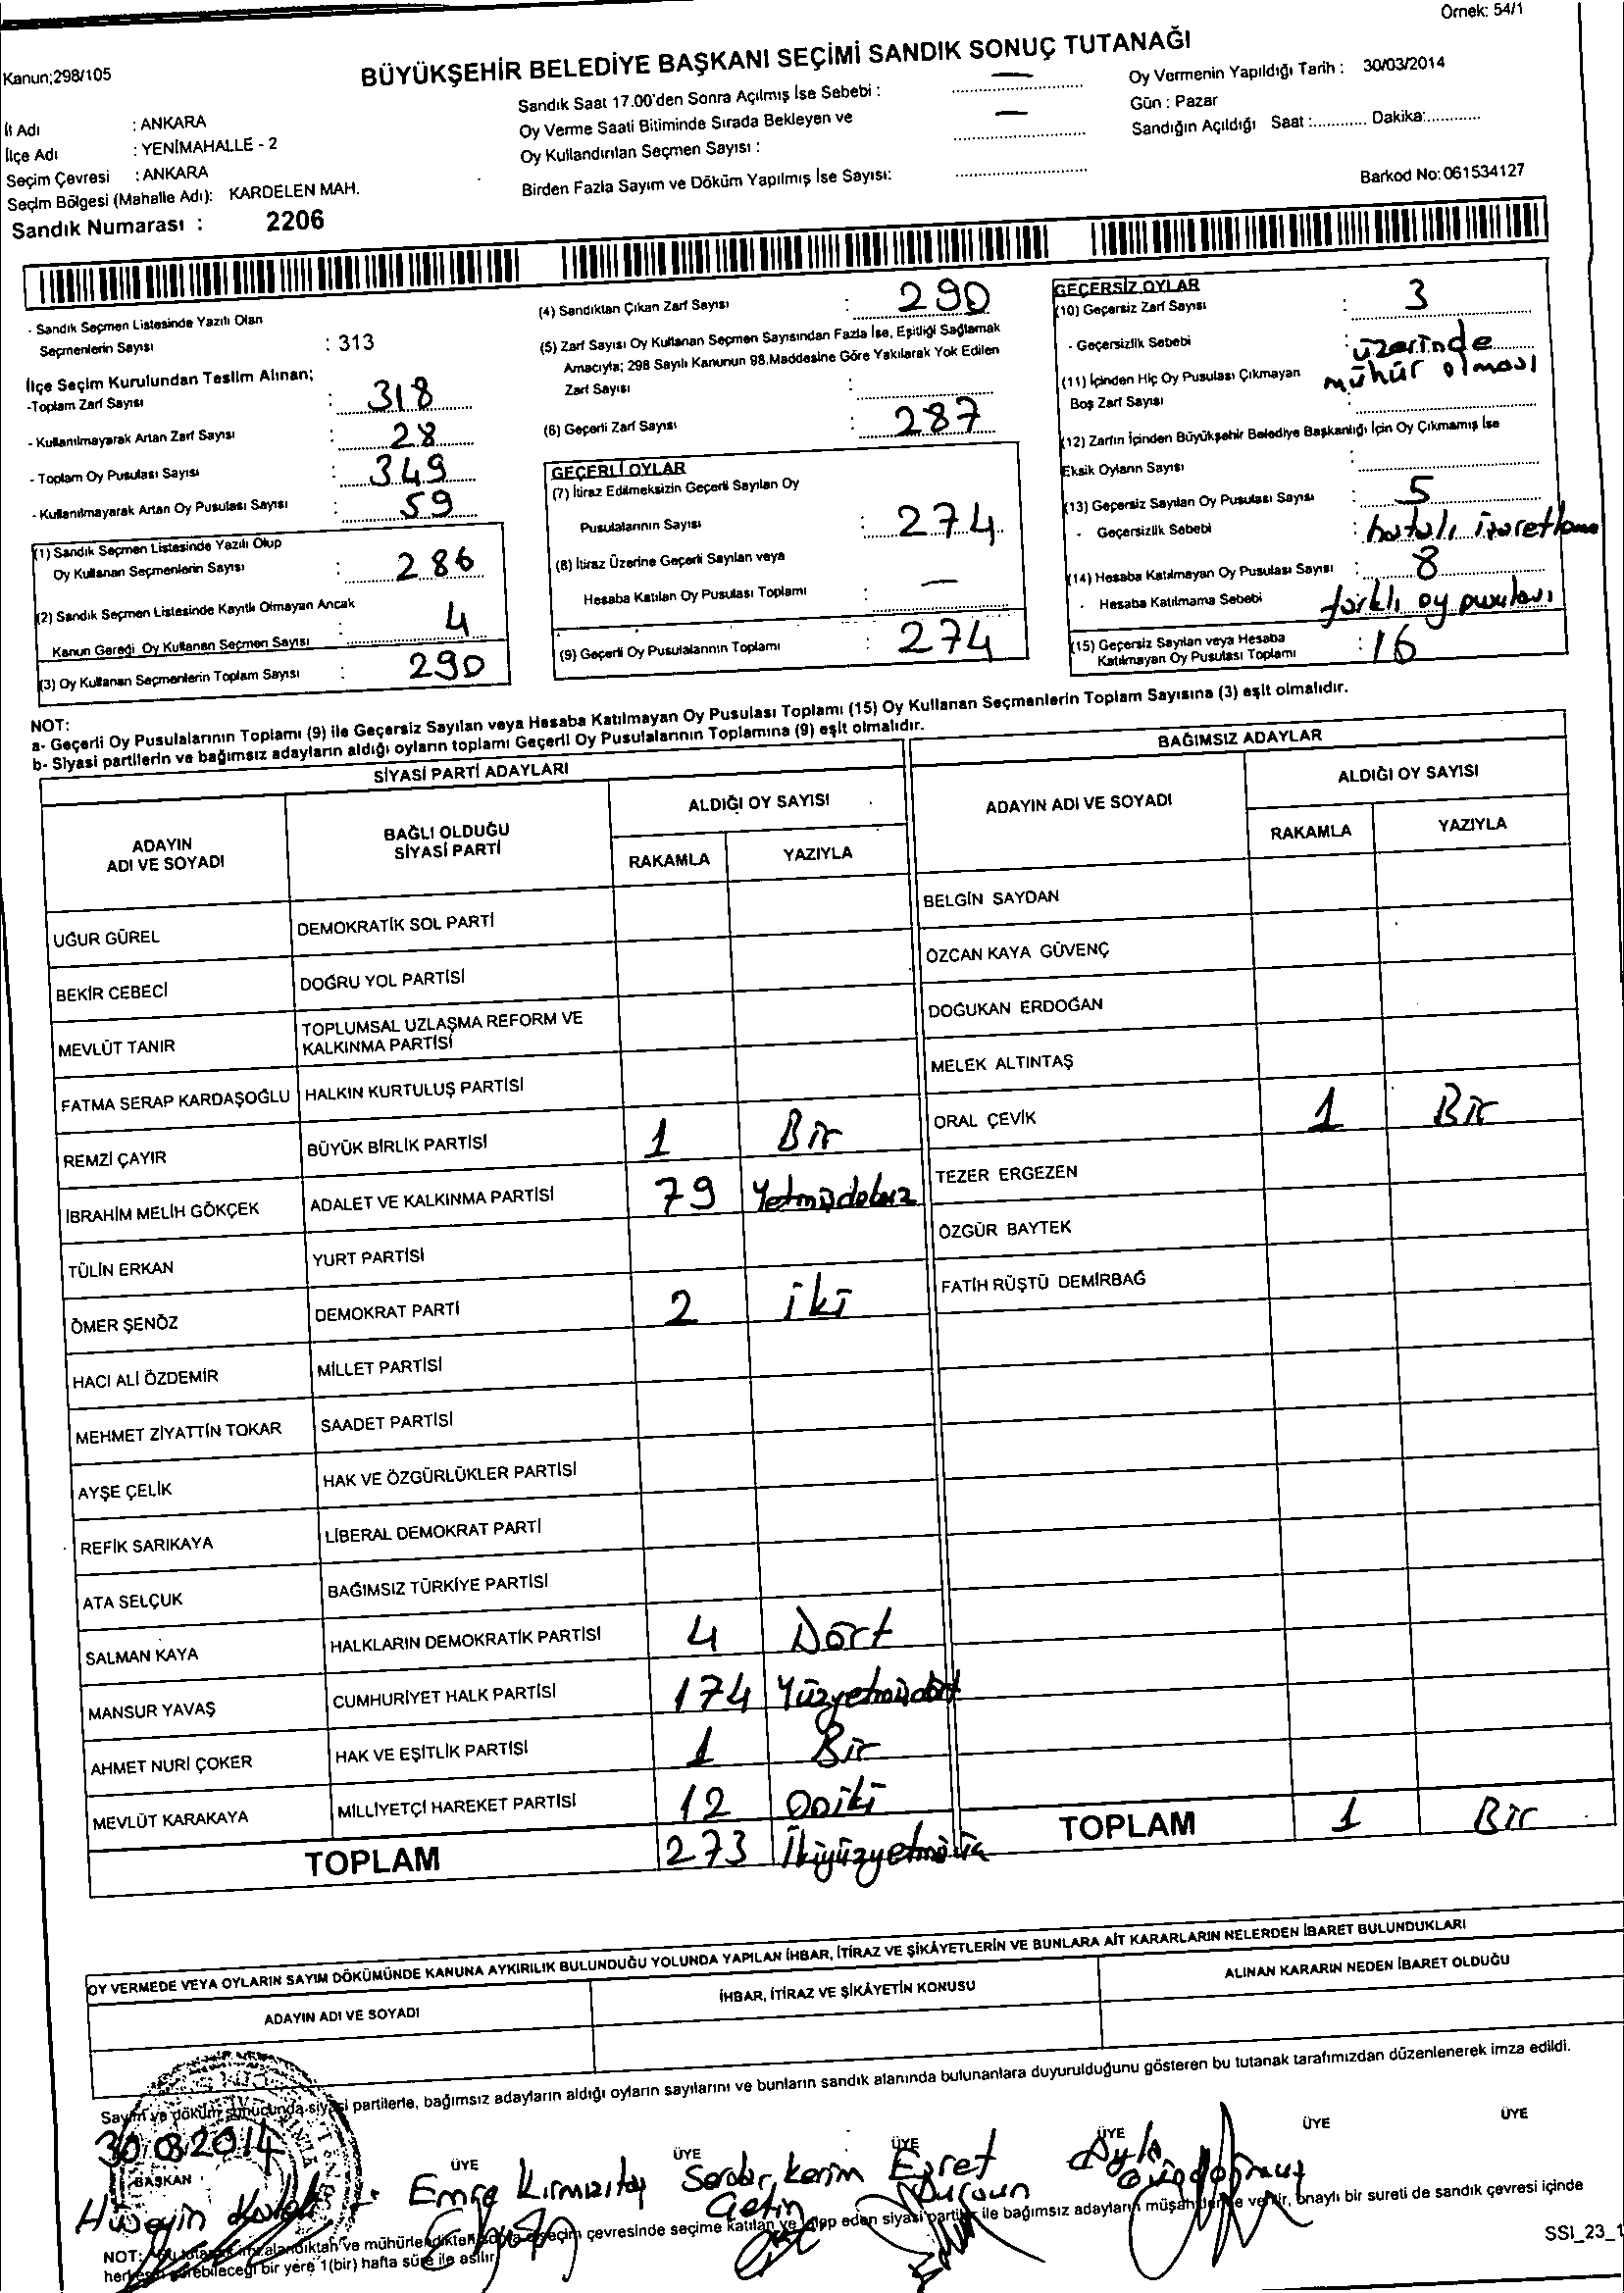 Örnek: 54/1
Kanun;298/105
BÜYÜKŞEHİR BELEDİYE BAŞKANI SEÇİMİ SANDIK SONUÇ TUTANAĞI
İl Adı : ANKARA
İlçe Adı : YENİMAHALLE - 2
Seçim Çevresi : ANKARA
Seçim Bölgesi (Mahalle Adı): KARDELEN MAH.
Sandık Numarası : 2206
Sandık Saat 17.00'den Sonra Açılmış İse Sebebi : —
Oy Verme Saati Bitiminde Sırada Bekleyen ve
Oy Kullandırılan Seçmen Sayısı : —
Birden Fazla Sayım ve Döküm Yapılmış İse Sayısı:
Oy Vermenin Yapıldığı Tarih : 30/03/2014
Gün : Pazar
Sandığın Açıldığı Saat :............ Dakika:............
Barkod No:061534127
- Sandık Seçmen Listesinde Yazılı Olan
Seçmenlerin Sayısı : 313
İlçe Seçim Kurulundan Teslim Alınan;
-Toplam Zarf Sayısı : 318
- Kullanılmayarak Artan Zarf Sayısı : 28
- Toplam Oy Pusulası Sayısı : 349
- Kullanılmayarak Artan Oy Pusulası Sayısı : 59
(1) Sandık Seçmen Listesinde Yazılı Olup
Oy Kullanan Seçmenlerin Sayısı : 286
(2) Sandık Seçmen Listesinde Kayıtlı Olmayan Ancak
Kanun Gereği Oy Kullanan Seçmen Sayısı : 4
(3) Oy Kullanan Seçmenlerin Toplam Sayısı : 290
(4) Sandıktan Çıkan Zarf Sayısı : 290
(5) Zarf Sayısı Oy Kullanan Seçmen Sayısından Fazla İse, Eşitliği Sağlamak
Amacıyla; 298 Sayılı Kanunun 98.Maddesine Göre Yakılarak Yok Edilen
Zarf Sayısı :
(6) Geçerli Zarf Sayısı : 287
GEÇERLİ OYLAR
(7) İtiraz Edilmeksizin Geçerli Sayılan Oy
Pusulalarının Sayısı : 274
(8) İtiraz Üzerine Geçerli Sayılan veya
Hesaba Katılan Oy Pusulası Toplamı : —
(9) Geçerli Oy Pusulalarının Toplamı : 274
GEÇERSİZ OYLAR
(10) Geçersiz Zarf Sayısı : 3
- Geçersizlik Sebebi : üzerinde
mühür olması
(11) İçinden Hiç Oy Pusulası Çıkmayan
Boş Zarf Sayısı :
(12) Zarfın İçinden Büyükşehir Belediye Başkanlığı İçin Oy Çıkmamış İse
Eksik Oyların Sayısı :
(13) Geçersiz Sayılan Oy Pusulası Sayısı : 5
- Geçersizlik Sebebi : hatalı işaretleme
(14) Hesaba Katılmayan Oy Pusulası Sayısı : 8
- Hesaba Katılmama Sebebi farklı oy pusulası
(15) Geçersiz Sayılan veya Hesaba
Katılmayan Oy Pusulası Toplamı : 16
NOT:
a- Geçerli Oy Pusulalarının Toplamı (9) ile Geçersiz Sayılan veya Hesaba Katılmayan Oy Pusulası Toplamı (15) Oy Kullanan Seçmenlerin Toplam Sayısına (3) eşit olmalıdır.
b- Siyasi partilerin ve bağımsız adayların aldığı oyların toplamı Geçerli Oy Pusulalarının Toplamına (9) eşit olmalıdır.
SİYASİ PARTİ ADAYLARI
ADAYIN ADI VE SOYADI BAĞLI OLDUĞU SİYASİ PARTİ ALDIĞI OY SAYISI
RAKAMLA YAZIYLA
UĞUR GÜREL DEMOKRATİK SOL PARTİ
BEKİR CEBECİ DOĞRU YOL PARTİSİ
MEVLÜT TANIR TOPLUMSAL UZLAŞMA REFORM VE KALKINMA PARTİSİ
FATMA SERAP KARDAŞOĞLU HALKIN KURTULUŞ PARTİSİ
REMZİ ÇAYIR BÜYÜK BİRLİK PARTİSİ 1 Bir
İBRAHİM MELİH GÖKÇEK ADALET VE KALKINMA PARTİSİ 79 Yetmişdokuz
TÜLİN ERKAN YURT PARTİSİ
ÖMER ŞENÖZ DEMOKRAT PARTİ 2 iki
HACI ALİ ÖZDEMİR MİLLET PARTİSİ
MEHMET ZİYATTİN TOKAR SAADET PARTİSİ
AYŞE ÇELİK HAK VE ÖZGÜRLÜKLER PARTİSİ
REFİK SARIKAYA LİBERAL DEMOKRAT PARTİ
ATA SELÇUK BAĞIMSIZ TÜRKİYE PARTİSİ
SALMAN KAYA HALKLARIN DEMOKRATİK PARTİSİ 4 Dört
MANSUR YAVAŞ CUMHURİYET HALK PARTİSİ 174 Yüzyetmişdört
AHMET NURİ ÇOKER HAK VE EŞİTLİK PARTİSİ 1 Bir
MEVLÜT KARAKAYA MİLLİYETÇİ HAREKET PARTİSİ 12 Oniki
TOPLAM 273 İkiyüzyetmişüç
BAĞIMSIZ ADAYLAR
ADAYIN ADI VE SOYADI ALDIĞI OY SAYISI
RAKAMLA YAZIYLA
BELGİN SAYDAN
ÖZCAN KAYA GÜVENÇ
DOĞUKAN ERDOĞAN
MELEK ALTINTAŞ
ORAL ÇEVİK 1 Bir
TEZER ERGEZEN
ÖZGÜR BAYTEK
FATİH RÜŞTÜ DEMİRBAĞ
TOPLAM 1 Bir
OY VERMEDE VEYA OYLARIN SAYIM DÖKÜMÜNDE KANUNA AYKIRILIK BULUNDUĞU YOLUNDA YAPILAN İHBAR, İTİRAZ VE ŞİKÂYETLERİN VE BUNLARA AİT KARARLARIN NELERDEN İBARET BULUNDUKLARI
ADAYIN ADI VE SOYADI İHBAR, İTİRAZ VE ŞİKÂYETİN KONUSU ALINAN KARARIN NEDEN İBARET OLDUĞU
Sayım ve döküm sonucunda siyasi partilerle, bağımsız adayların aldığı oyların sayılarını ve bunların sandık alanında bulunanlara duyurulduğunu gösteren bu tutanak tarafımızdan düzenlenerek imza edildi.
30.03.2014
BAŞKAN ÜYE ÜYE ÜYE ÜYE ÜYE ÜYE
Hüseyin
Emre Kırmızıtaş
Serdar Kerim
Çetin
Esret
Dursun
Ayla
NOT: ve mühürlendikten seçim çevresinde seçime katılan ve talep eden siyasi partiler ile bağımsız adayların müşahitlerine verilir, onaylı bir sureti de sandık çevresi içinde
herkesin görebileceği bir yere 1(bir) hafta süre ile asılır.
SSI_23_1